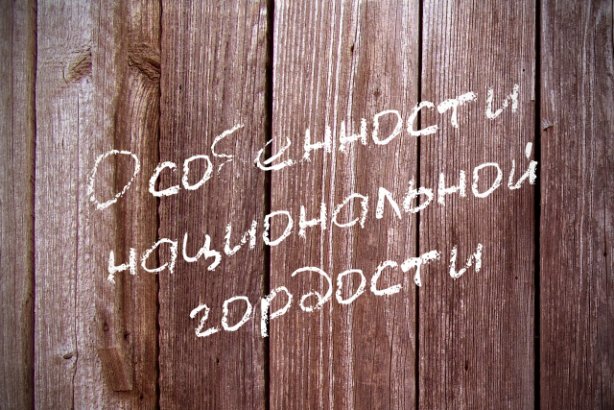 Особенности
национальной
гордости